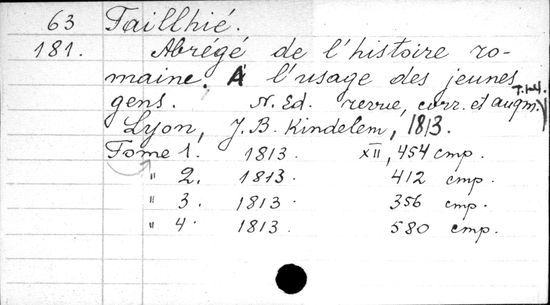 63 Taillhié.
181. Abrégé de l'histoire ro-
maine. A l'usage des jeunes
gens. N. Ed. revue, corr. et augm. T. 1-4.
Lyon, J. B. Kindelem, 1813.
Tome 1. 1813. XII, 454 стр.
" 2. 1813. 412 стр.
" 3. 1813. 356 стр.
" 4. 1813. 580 стр.